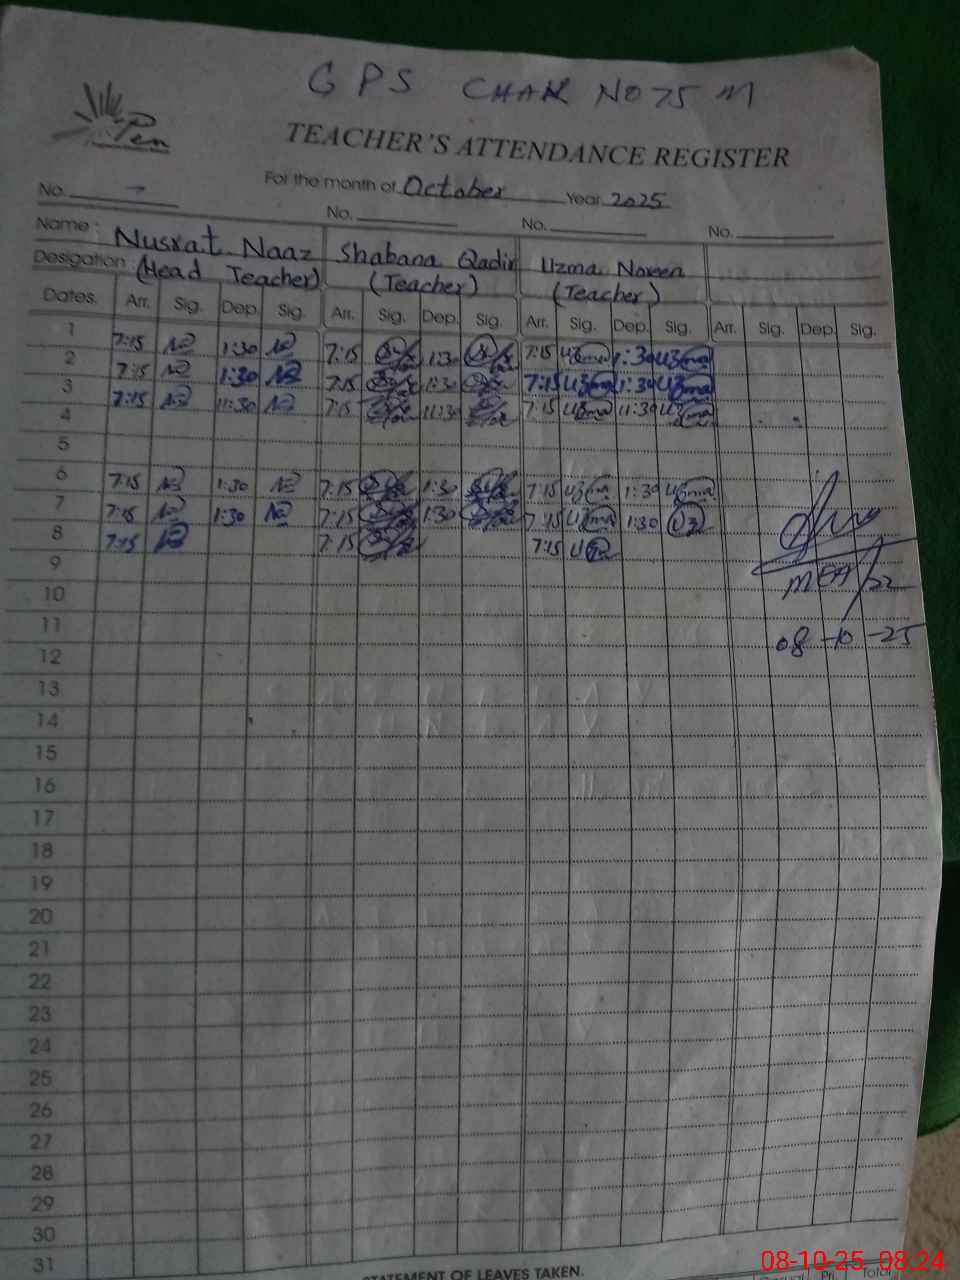 GPS CHAK NO 75 M
Pen
TEACHER'S ATTENDANCE REGISTER
No. For the month of October Year 2025
No. No. No.
Name: Nusrat Naaz Shabana Qadir Uzma Noreen
Desigation (Head Teacher) (Teacher) (Teacher)
Dates. Arr. Sig. Dep. Sig. Arr. Sig. Dep. Sig. Arr. Sig. Dep. Sig. Arr. Sig. Dep. Sig.
1 7:15 1:30 7:15 1:30 7:15 Uzma 1:30 Uzma
2 7:15 1:30 7:15 1:30 7:15 Uzma 1:30 Uzma
3 7:15 11:30 7:15 11:30 7:15 Uzma 11:30 Uzma
4
5
6 7:15 1:30 7:15 1:30 7:15 Uzma 1:30 Uzma
7 7:15 1:30 7:15 1:30 7:15 Uzma 1:30 Uz
8 7:15 7:15 7:15
9
10
11
08-10-25
12
13
14
15
16
17
18
19
20
21
22
23
24
25
26
27
28
29
30
31
STATEMENT OF LEAVES TAKEN.
08-10-25 08:24